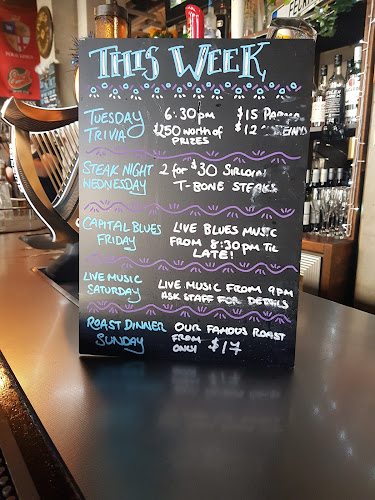 THIS WEEK
TUESDAY TRIVIA
6:30pm
$250 worth of PRIZES
$15 PARMA
$12
STEAK NIGHT WEDNESDAY
2 for $30 SIRLOIN
T-BONE STEAKS
CAPITAL BLUES FRIDAY
LIVE BLUES MUSIC
FROM 8:30pm TIL
LATE!
LIVE MUSIC SATURDAY
LIVE MUSIC FROM 9PM
ASK STAFF FOR DETAILS
ROAST DINNER SUNDAY
OUR FAMOUS ROAST
FROM
ONLY $17